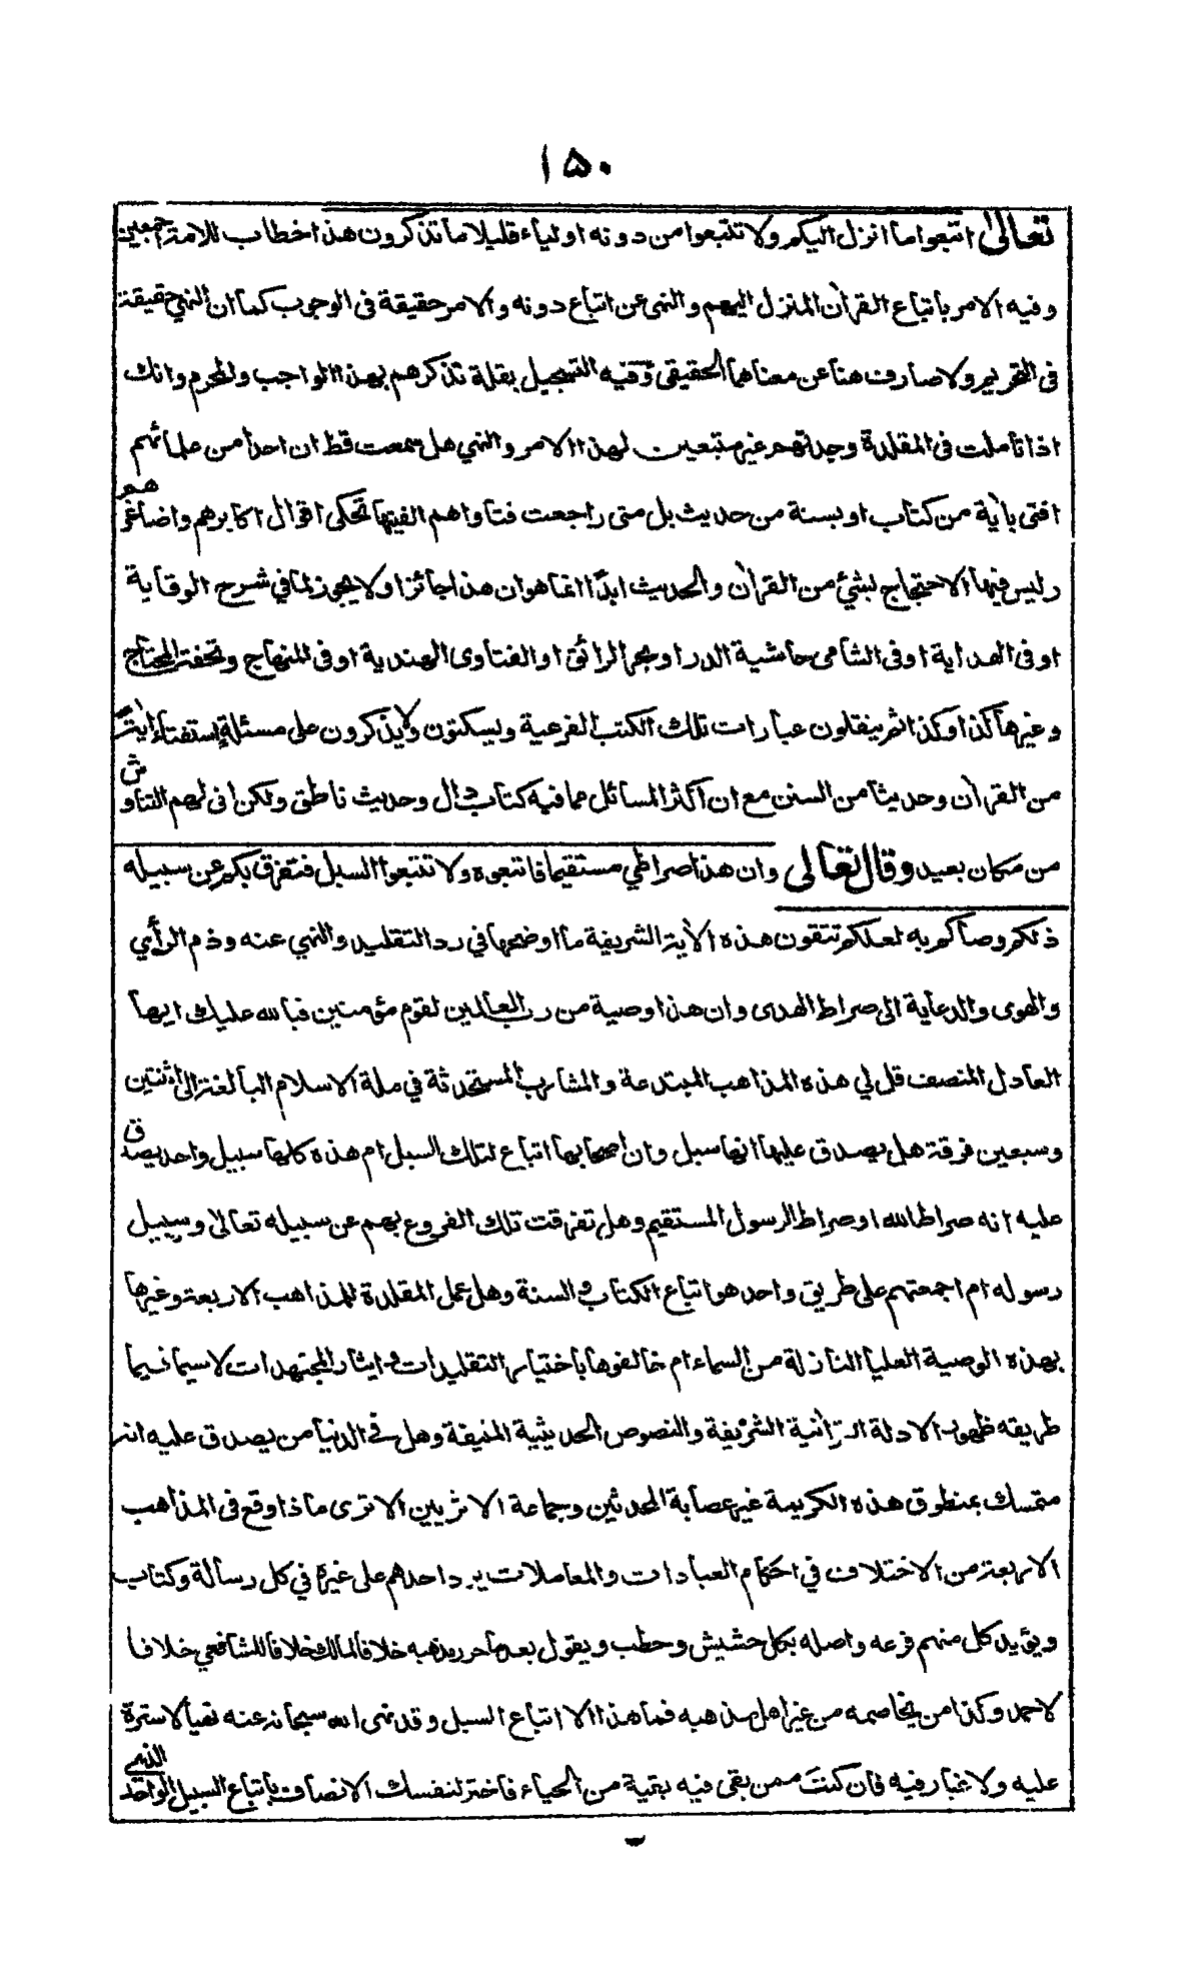 ۱۵۰
تعالىٰ اتبعوا ما انزل اليكم ولا تتبعوا من دونه اولياء قليلا ما تذكرون هذا خطاب للامة اجمعين
وفيه الامر باتباع القرآن المنزل اليهم والنهى عن اتباع دونه والامر حقيقة فى الوجوب كما ان النهي حقيقة
فى التحريم ولا صارف هنا عن معناهما الحقيقى وفيه التسجيل بقلة تذكرهم بهذا الواجب والمحرم وانك
اذا تأملت فى المقلدة وجدتهم غير متبعين لهذا الامر والنهي هل سمعت قط ان احدا من علمائهم
افتى بأية من كتاب او بسنة من حديث بل متى راجعت فتاواهم الفيتها تحكى اقوال اكابرهم واصاغرهم
وليس فيها الاحتجاج بشئ من القرآن والحديث ابدًا انما هو ان هذا جائز او لا يجوز لما في شرح الوقاية
او فى الهداية او فى الشامى حاشية الدر او بحر الرائق او الفتاوى الهندية او فى المنهاج وتحفة المحتاج
وغيرها كذا وكذا ثم ينقلون عبارات تلك الكتب الفرعية ويسكتون ولا يذكرون على مسئلة استفتاء اٰيةً
من القرآن وحديثا من السنن مع ان اكثر المسائل مما فيه كتاب دال وحديث ناطق ولكن انى لهم التناوش
من مكان بعيد وقال تعالى وان هذا صراطي مستقيما فاتبعوه ولا تتبعوا السبل فتفرق بكم عن سبيله
ذلكم وصاكم به لعلكم تتقون هذه الأية الشريفة ما اوضحها في رد التقليد والنهي عنه وذم الرأي
والهوى والدعاية الى صراط الهدى وان هذا وصية من رب العالمين لقوم مؤمنين فبالله عليك ايها
العادل المنصف قل لي هذه المذاهب المبتدعة والمشارب المستحدثة في ملة الاسلام البالغة الى اثنتين
وسبعين فرقة هل يصدق عليها انها سبل وان اصحابها اتباع لتلك السبل ام هذه كلها سبيل واحد يصدق
عليه انه صراط الله او صراط الرسول المستقيم وهل تفرقت تلك الفروع بهم عن سبيله تعالىٰ وسبيل
رسوله ام اجمعتهم على طريق واحد هو اتباع الكتاب والسنة وهل عمل المقلدة للمذاهب الاربعة وغيرها
بهذه الوصية العليا النازلة من السماء ام خالفوها باختيار التقليدات وايثار المجتهدات لا سيما فيما
طريقه ظهور الادلة القرآنية الشريفة والنصوص الحديثية المنيفة وهل في الدنيا من يصدق عليه انه
متمسك بمنطوق هذه الكريمة غير عصابة المحدثين وجماعة الاثريين الا ترى ماذا وقع فى المذاهب
الاربعة من الاختلاف في احكام العبادات والمعاملات يرد احدهم على غيره في كل رسالة وكتاب
ويؤيد كل منهم فرعه واصله بكل حشيش وحطب ويقول بعد ما حرر مذهبه خلافا لمالك خلافا للشافعي خلافا
لاحمد وكذا من يخاصمه من غير اهل مذهبه فما هذا الا اتباع السبل وقد نهى الله سبحانه عنه نهيا لا سترة
عليه ولا غبار فيه فان كنت ممن بقى فيه بقية من الحياء فاختر لنفسك الانصاف باتباع السبيل الواحد الذى